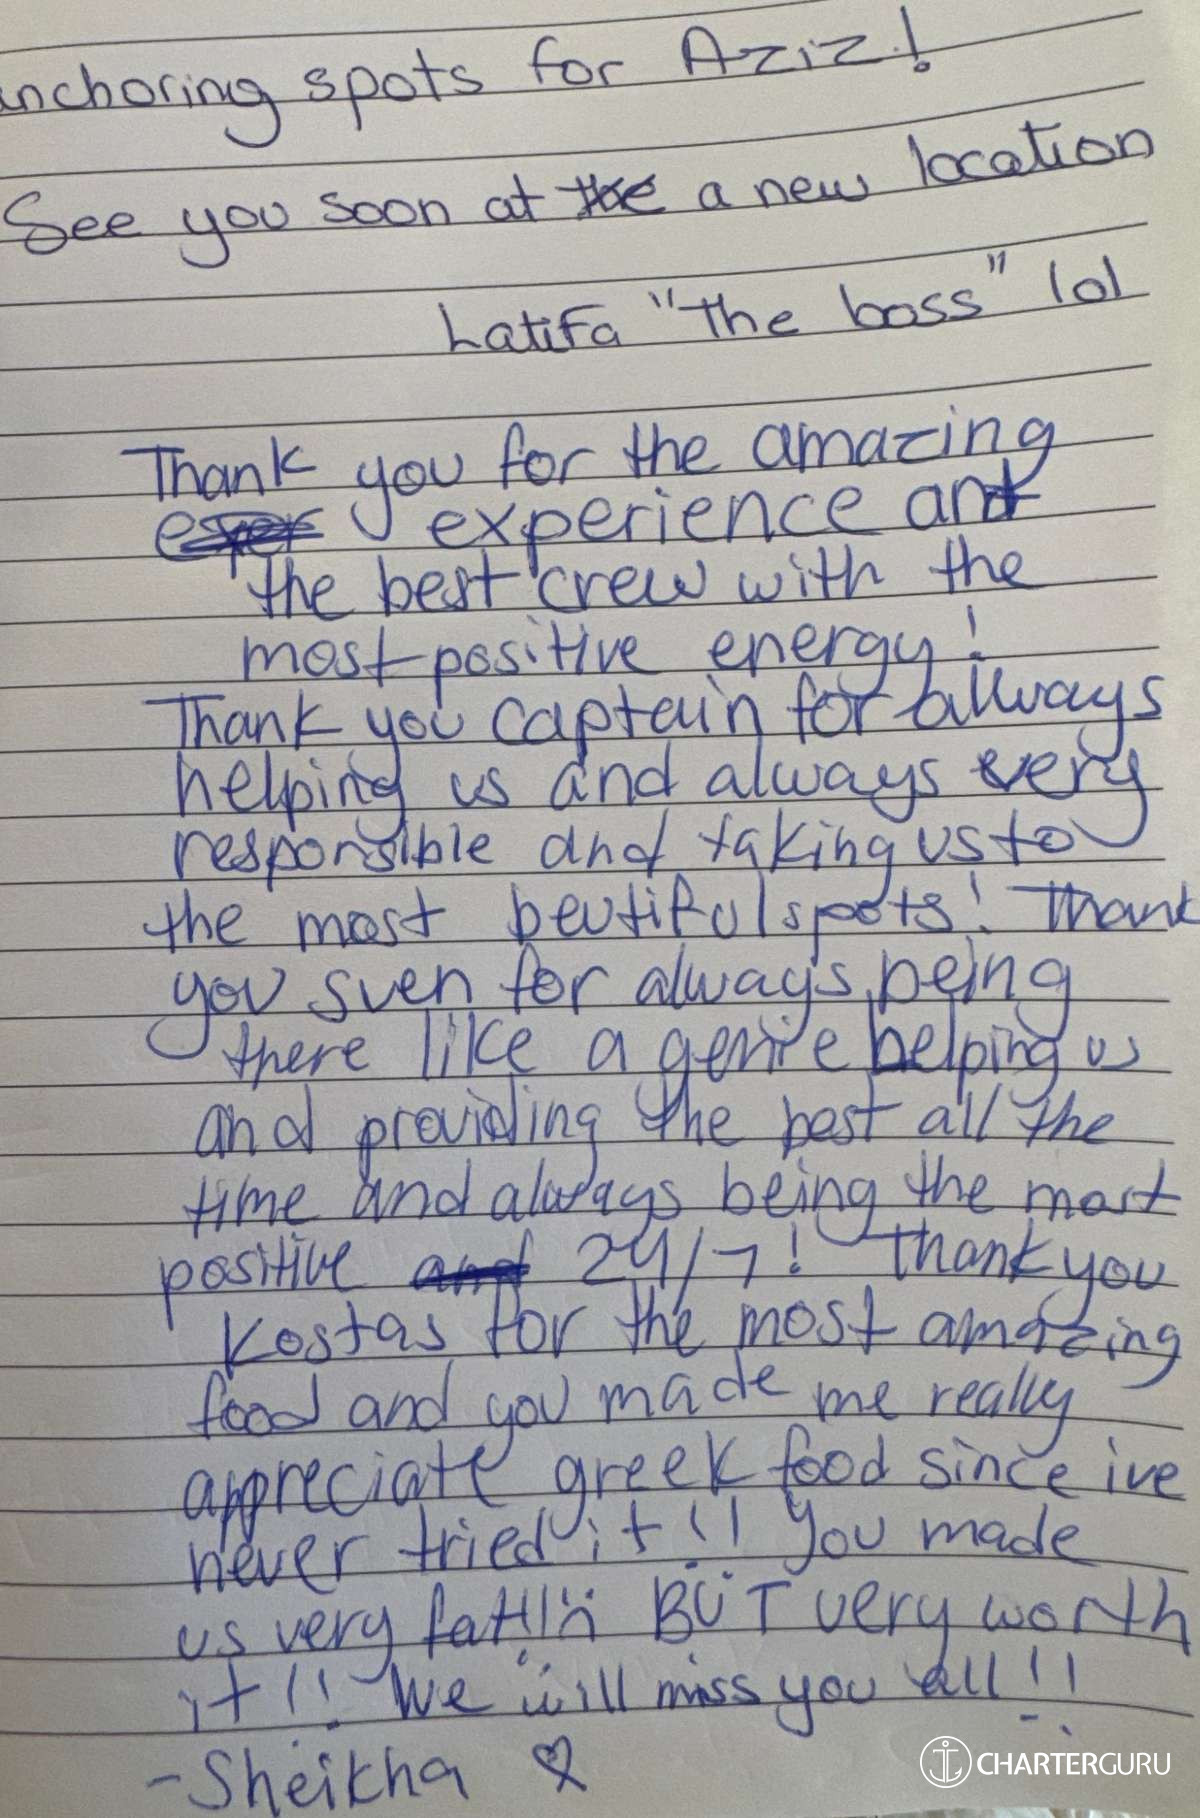 anchoring spots for Aziz!
See you soon at the a new location
Latifa "the boss" lol
Thank you for the amazing
exper experience and
the best crew with the
most positive energy!
Thank you captain for always
helping us and always very
responsible and taking us to
the most beutiful spots! Thank
you sven for always being
there like a genie helping us
and providing the best all the
time and always being the most
positive and 24/7! Thank you
Kostas for the most amazing
food and you made me really
appreciate greek food since ive
never tried it!! You made
us very fat!! BUT very worth
it!! We will miss you all!!
-Sheikha ♡
CHARTERGURU